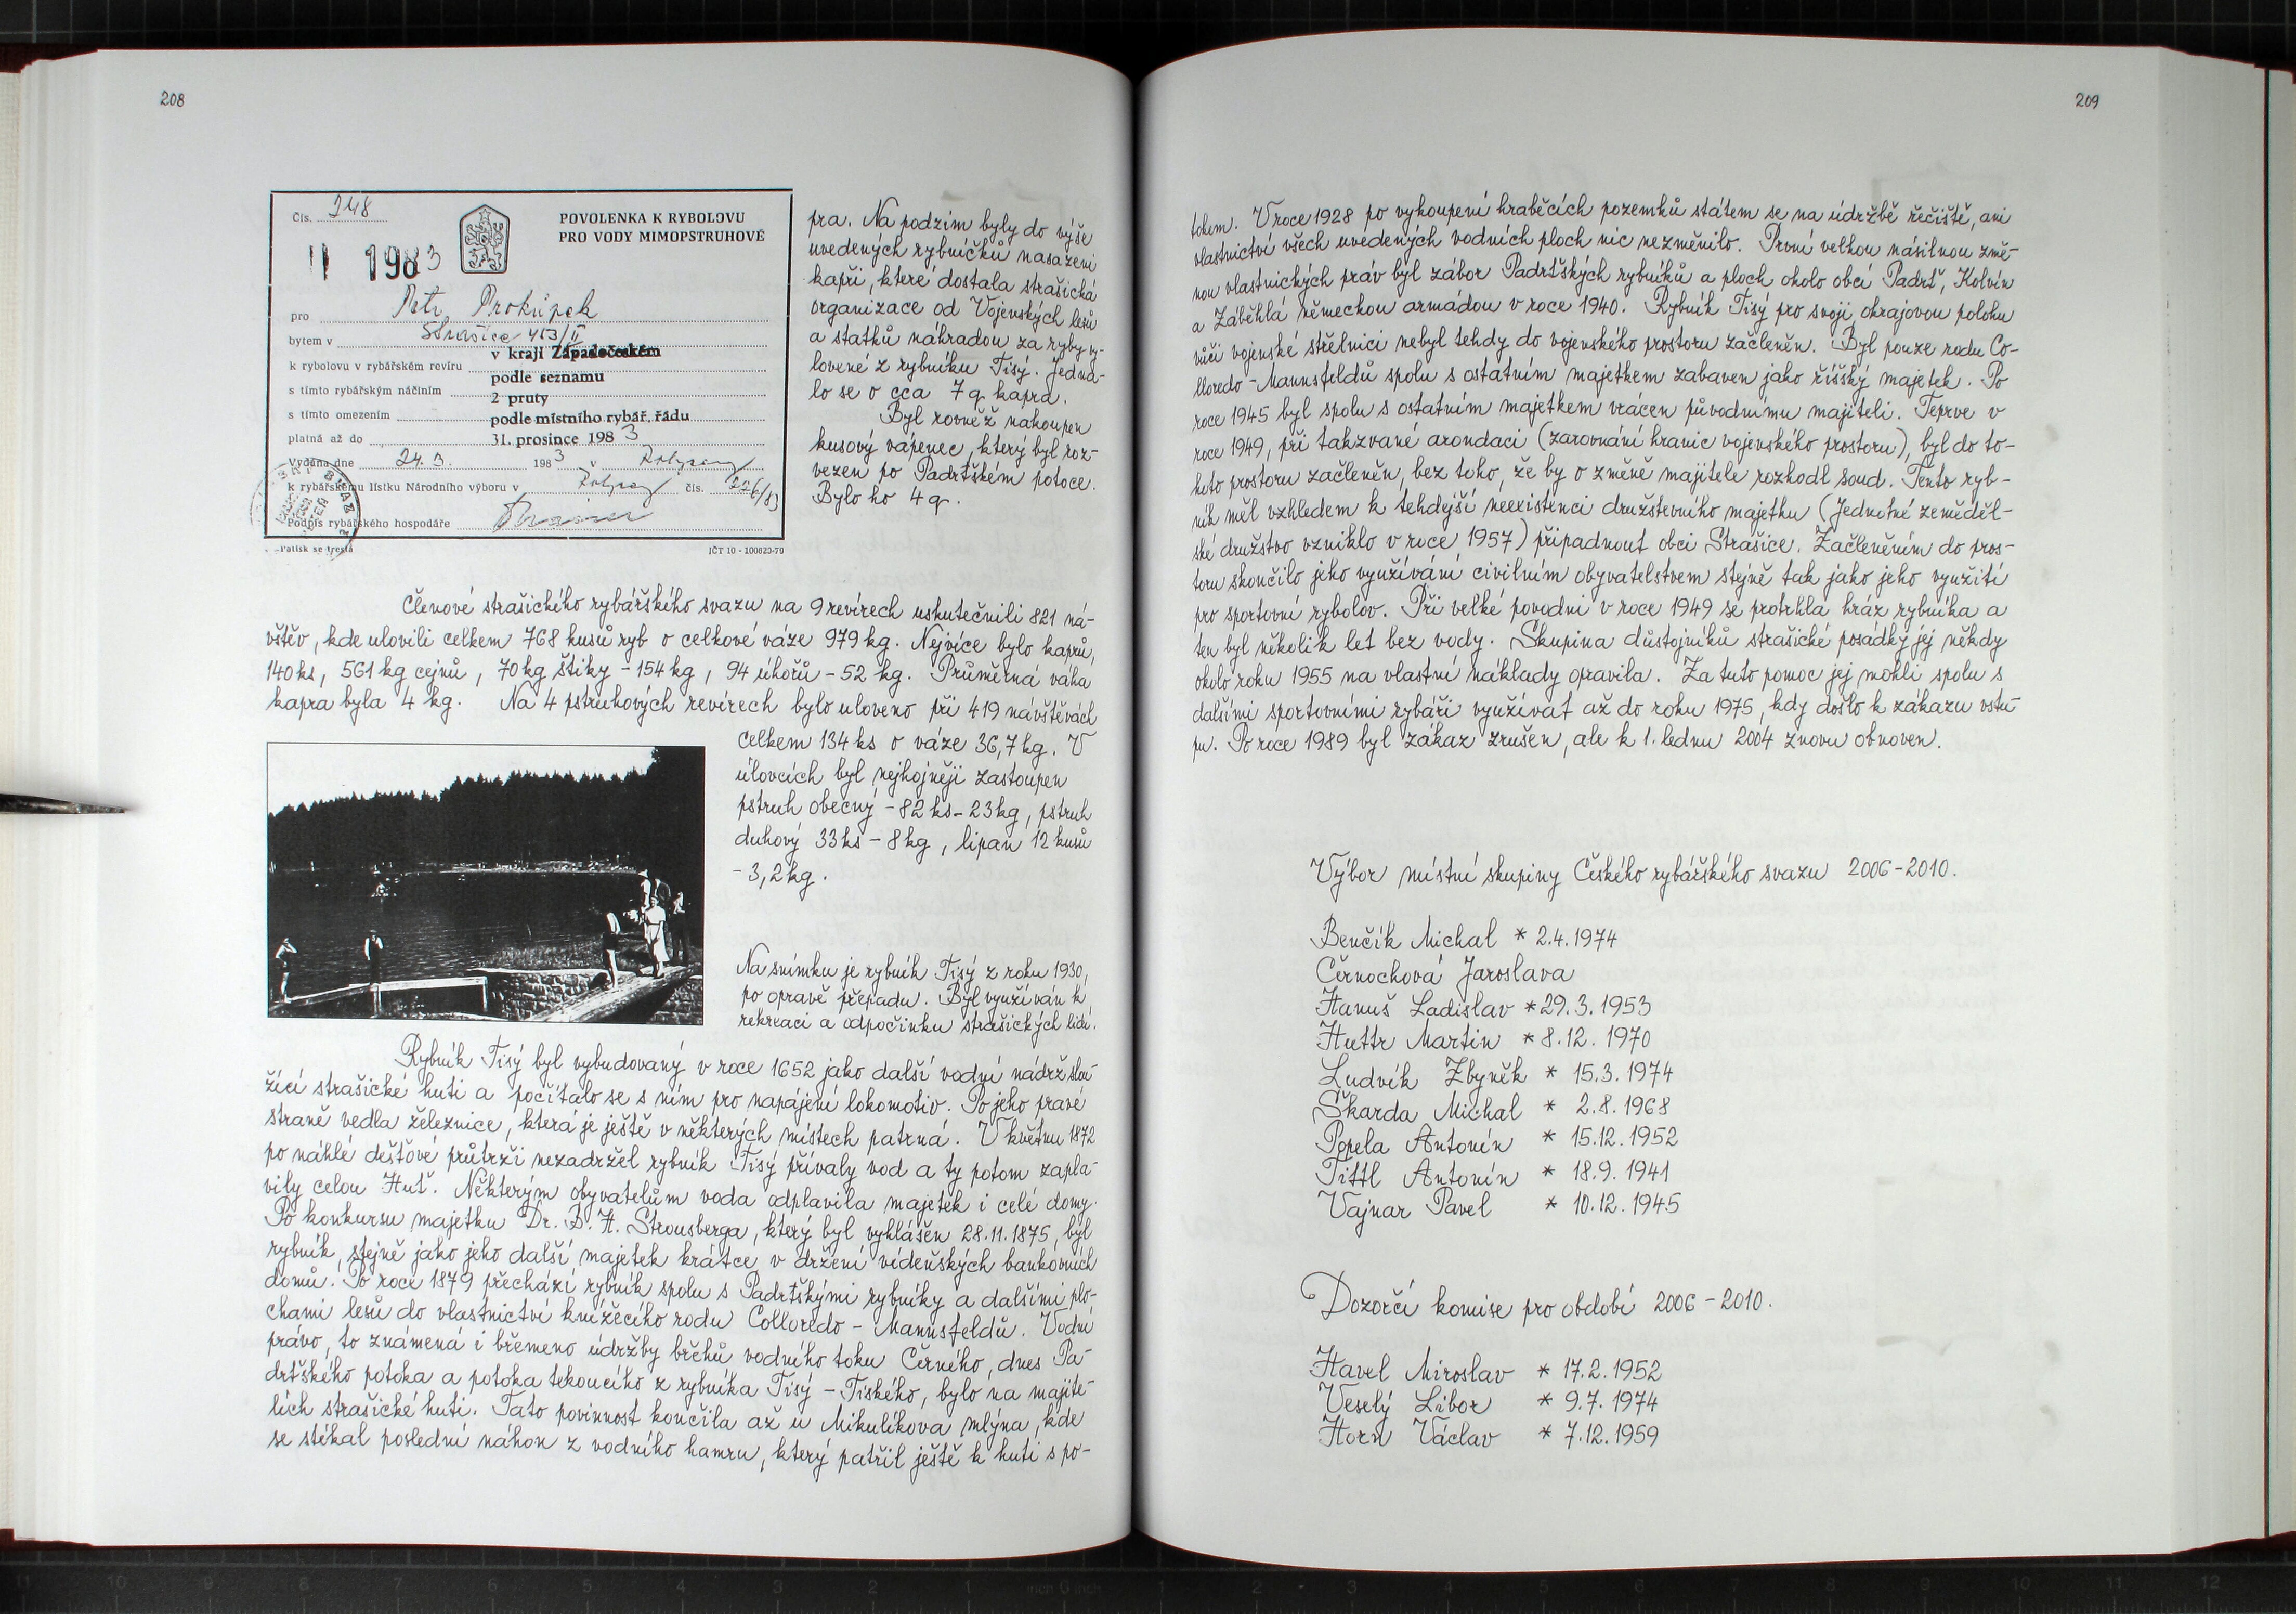 208
Čís. 248
POVOLENKA K RYBOLOVU
PRO VODY MIMOPSTRUHOVÉ
II 1983
pro Petr Prokůpek
bytem v Strašice 453/II
v kraji Západočeském
k rybolovu v rybářském revíru
podle seznamu
s tímto rybářským náčiním
2 pruty
s tímto omezením
podle místního rybář. řádu
platná až do 31. prosince 1983
Vydána dne 24. 3. 1983 v
k rybářskému lístku Národního výboru v čís. 226/83
Podpis rybářského hospodáře
Patisk se trestá
IČT 10 - 100623-79
pra. Na podzim byly do výše
uvedených rybníčků nasazeni
kapři, které dostala strašická
organizace od Vojenských lesů
a statků náhradou za ryby vy-
lovené z rybníku Tisý. Jedna-
lo se o cca 7 q kapra.
Byl rovněž nakoupen
kusový vápenec, který byl roz-
vezen po Padrťském potoce.
Bylo ho 4 q.
Členové strašického rybářského svazu na 9 revírech uskutečnili 821 ná-
vštěv, kde ulovili celkem 768 kusů ryb o celkové váze 979 kg. Nejvíce bylo kaprů,
140 ks, 561 kg cejnů, 70 kg štiky - 154 kg, 94 úhořů - 52 kg. Průměrná váha
kapra byla 4 kg. Na 4 pstruhových revírech bylo uloveno při 419 návštěvách
celkem 134 ks o váze 36,7 kg. V
úlovcích byl nejhojněji zastoupen
pstruh obecný - 82 ks - 23 kg, pstruh
duhový 33 ks - 8 kg, lipan 12 kusů
- 3,2 kg.
Na snímku je rybník Tisý z roku 1930,
po opravě přepadu. Byl využíván k
rekreaci a odpočinku strašických lidí.
Rybník Tisý byl vybudovaný v roce 1652 jako další vodní nádrž slou-
žící strašické huti a počítalo se s ním pro napájení lokomotiv. Po jeho pravé
straně vedla železnice, která je ještě v některých místech patrná. V květnu 1872
po náhlé dešťové průtrži nezadržel rybník Tisý přívaly vod a ty potom zapla-
vily celou Huť. Některým obyvatelům voda odplavila majetek i celé domy.
Po konkursu majetku Dr. B. H. Strousberga, který byl vyhlášen 28.11.1875, byl
rybník, stejně jako jeho další majetek krátce v držení vídeňských bankovních
domů. Po roce 1879 přechází rybník spolu s Padrťskými rybníky a dalšími plo-
chami lesů do vlastnictví knížecího rodu Colloredo - Mannsfeldů. Vodní
právo, to známená i břemeno údržby břehů vodního toku Černého, dnes Pa-
drťského potoka a potoka tekoucího z rybníka Tisý - Tiského, bylo na majite-
lích strašické huti. Tato povinnost končila až u Mikulíkova mlýna, kde
se stékal poslední náhon z vodního hamru, který patřil ještě k huti s po-
209
tokem. V roce 1928 po vykoupení hraběcích pozemků státem se na údržbě řečiště, ani
vlastnictví všech uvedených vodních ploch nic nezměnilo. První velkou násilnou změ-
nou vlastnických práv byl zábor Padrťských rybníků a ploch okolo obcí Padrť, Kolvín
a Záběhlá německou armádou v roce 1940. Rybník Tisý pro svoji okrajovou polohu
vůči vojenské střelnici nebyl tehdy do vojenského prostoru začleněn. Byl pouze rodu Co-
lloredo - Mannsfeldů spolu s ostatním majetkem zabaven jako říšský majetek. Po
roce 1945 byl spolu s ostatním majetkem vrácen původnímu majiteli. Teprve v
roce 1949, při takzvané arondaci (zarovnání hranic vojenského prostoru), byl do to-
hoto prostoru začleněn, bez toho, že by o změně majitele rozhodl soud. Tento ryb-
ník měl vzhledem k tehdejší neexistenci družstevního majetku (Jednotné zeměděl-
ské družstvo vzniklo v roce 1957) připadnout obci Strašice. Začleněním do pros-
toru skončilo jeho využívání civilním obyvatelstvem stejně tak jako jeho využití
pro sportovní rybolov. Při velké povodni v roce 1949 se protrhla hráz rybníka a
ten byl několik let bez vody. Skupina důstojníků strašické posádky jej někdy
okolo roku 1955 na vlastní náklady opravila. Za tuto pomoc jej mohli spolu s
dalšími sportovními rybáři využívat až do roku 1975, kdy došlo k zákazu vstu-
pu. Po roce 1989 byl zákaz zrušen, ale k 1. lednu 2004 znovu obnoven.
Výbor místní skupiny Českého rybářského svazu 2006 - 2010.
Benčík Michal * 2.4.1974
Černochová Jaroslava
Hanuš Ladislav * 29.3.1953
Huttr Martin * 8.12.1970
Ludvík Zbyněk * 15.3.1974
Škarda Michal * 2.8.1968
Popela Antonín * 15.12.1952
Tittl Antonín * 18.9.1941
Vajnar Pavel * 10.12.1945
Dozorčí komise pro období 2006 - 2010.
Havel Miroslav * 17.2.1952
Veselý Libor * 9.7.1974
Horn Václav * 7.12.1959